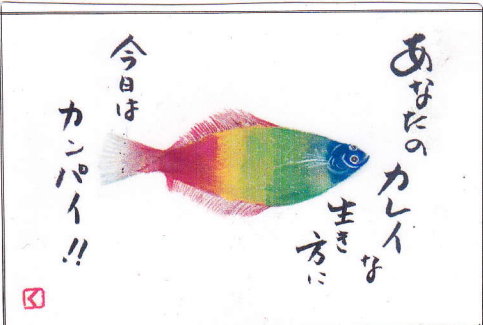 あなたの
カレイな
生き方に
今日は
カンパイ!!
く